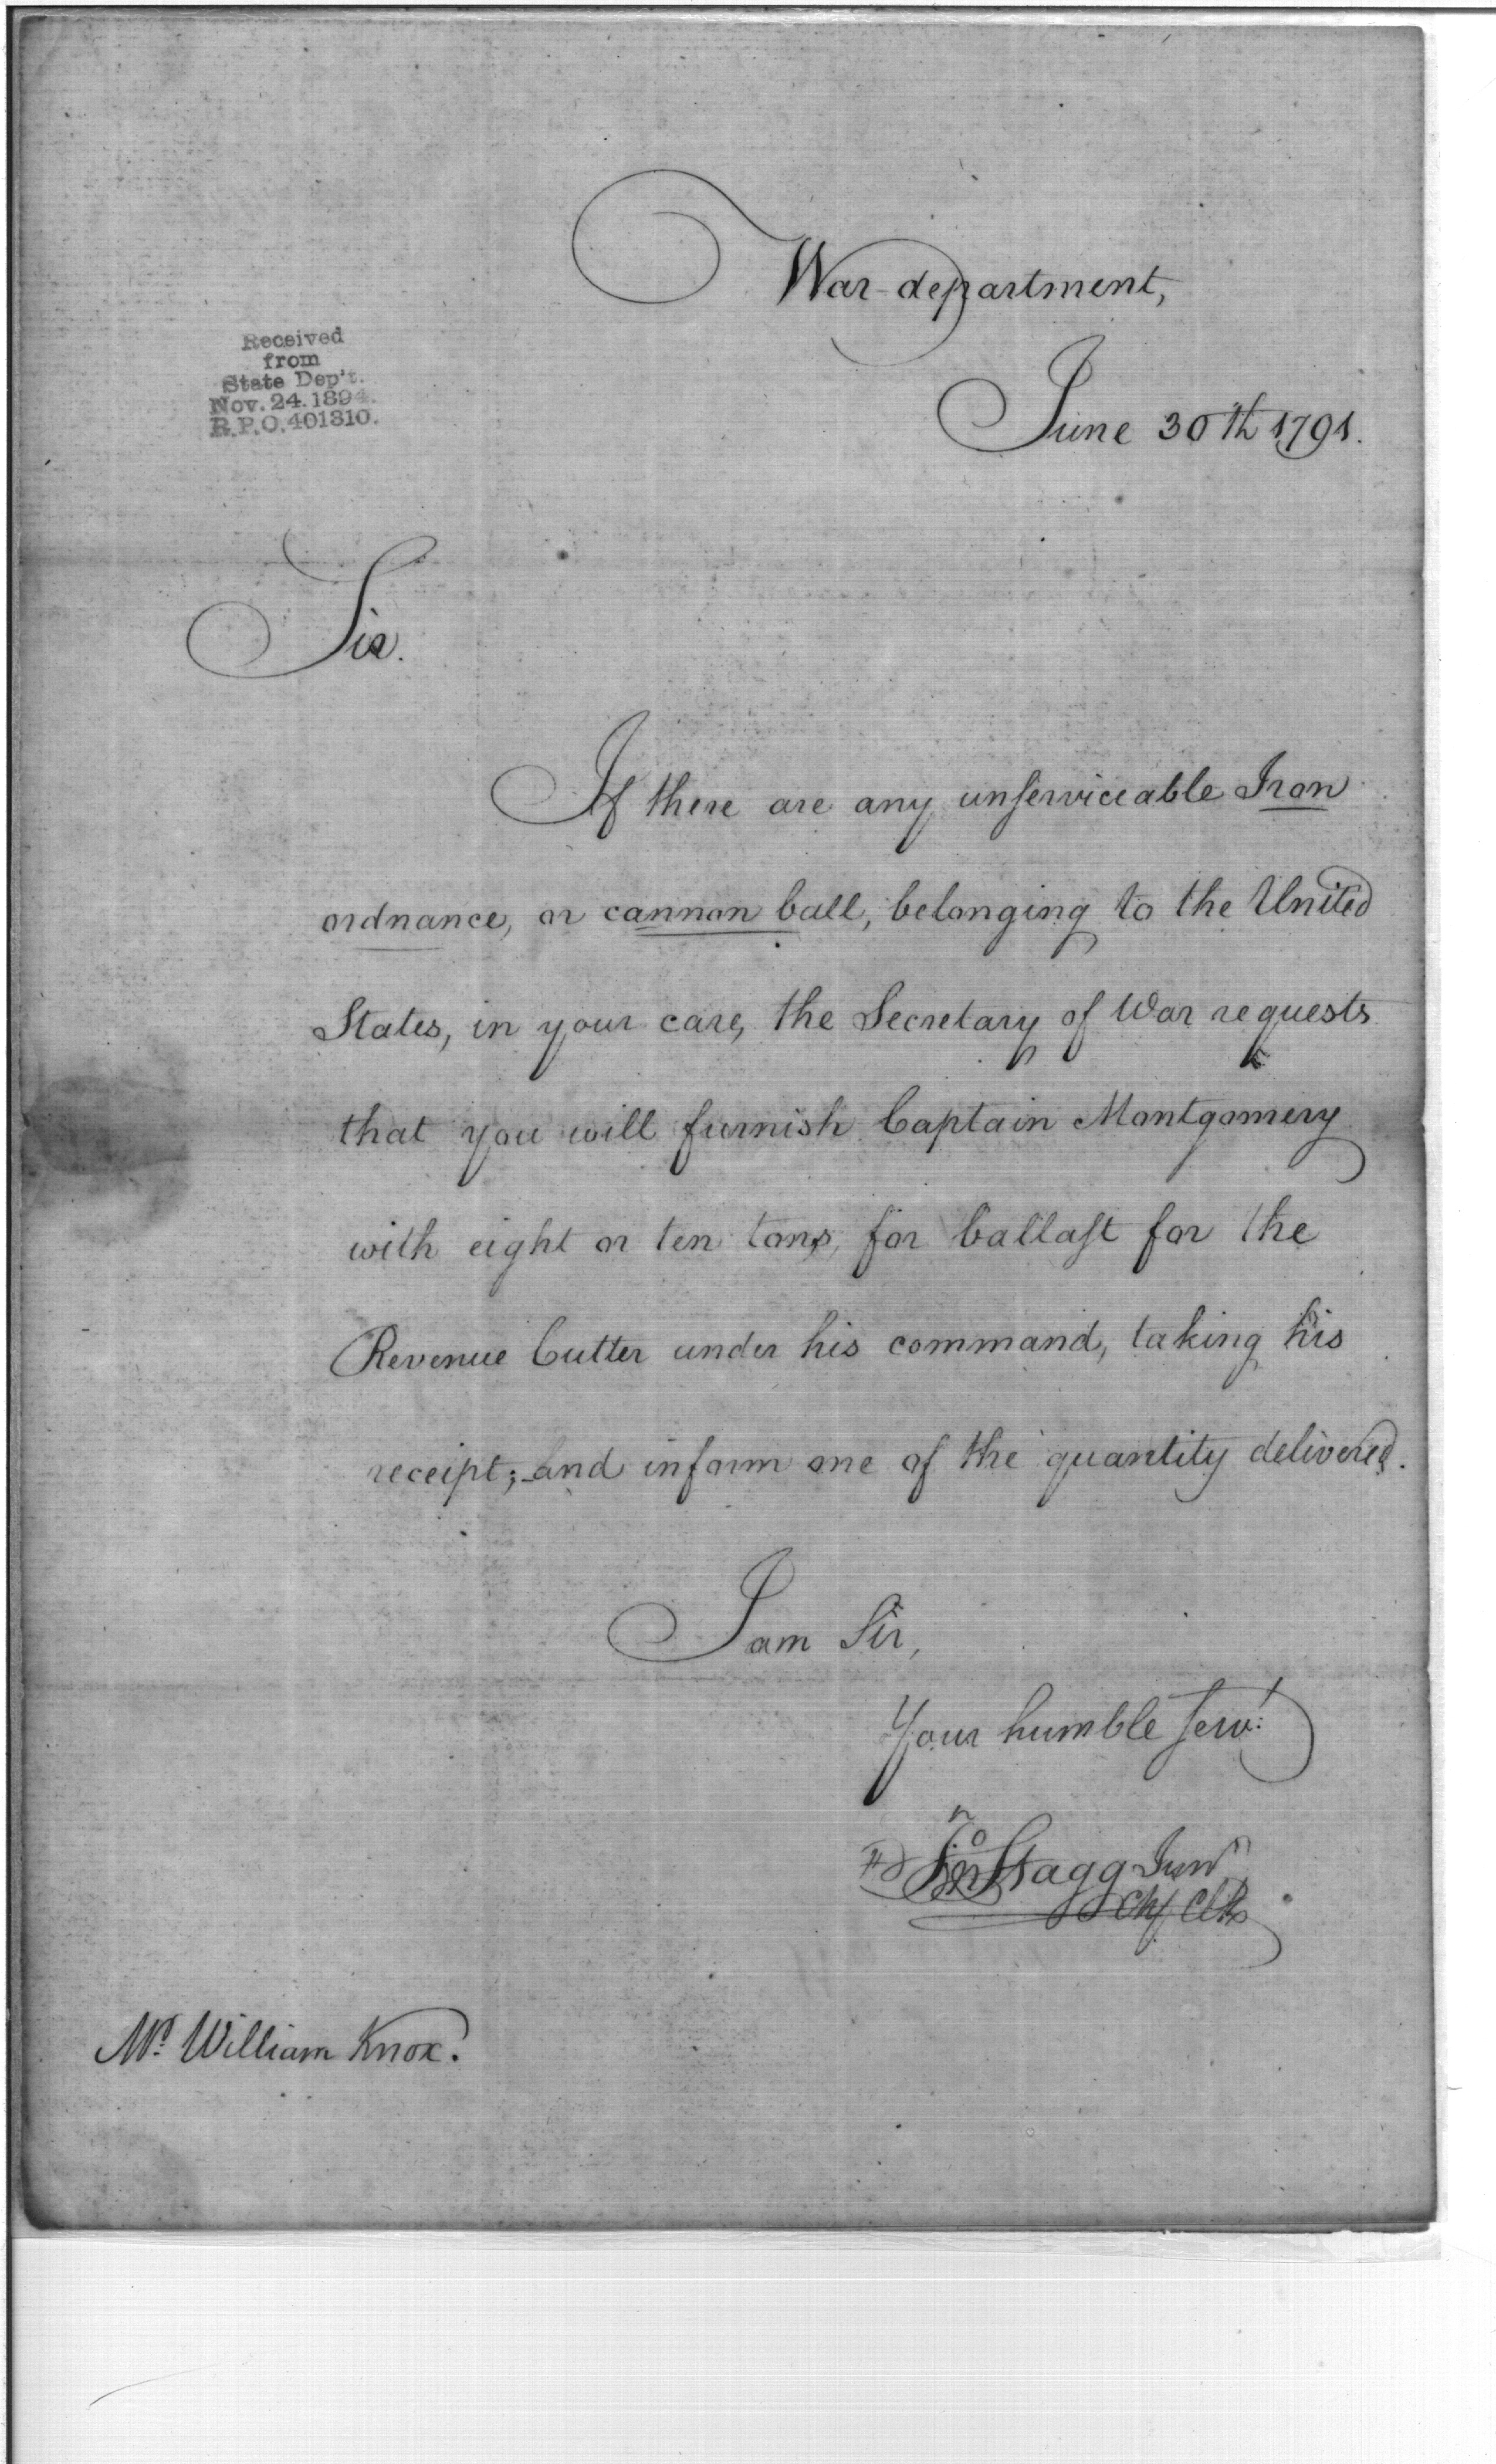 War department,
June 30th 1791.
Received
from
State Dep't.
Nov. 24. 1894.
R.P.O. 401310.
Sir.
If there are any unserviceable Iron
ordnance, or cannon ball, belonging to the United
States, in your care, the Secretary of War requests
that you will furnish Captain Montgomery
with eight or ten tons, for ballast for the
Revenue Cutter under his command, taking his
receipt; and inform me of the quantity delivered.
I am Sir,
Your humble Servt
Jno Stagg Junr
Chf Clk
Mr. William Knox.